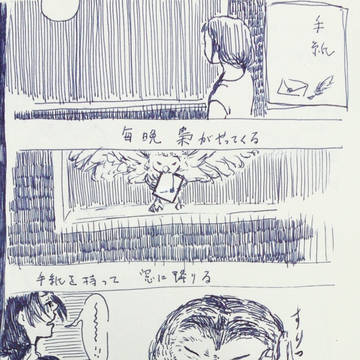 手紙
毎晩 梟がやってくる
手紙を持って 窓に降りる
すりっ